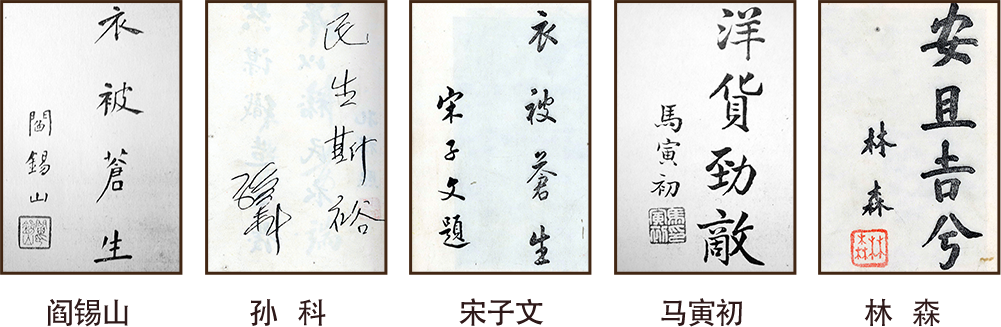 衣被蒼生
閻錫山
民生斯裕
孫科
衣被蒼生
宋子文題
洋貨勁敵
馬寅初
安且吉兮
林森
林森
阎锡山
孙 科
宋子文
马寅初
林 森